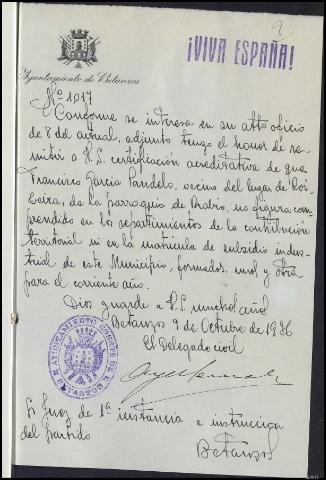 9
¡VIVA ESPAÑA!
Ayuntamiento de Betanzos
Nº 1017
Conforme se interesa en su atto oficio
de 8 del actual, adjunto tengo el honor de re-
mitir a V.S. certificación acreditativa de que
Francisco García Pandelo, vecino del lugar de
de la parroquia de Bravío, no figura com-
prendido en los repartimientos de la contribución
territorial ni en la matricula de subsidio indus-
trial de este Municipio, formados, uno y otra
para el corriente año.
Dios guarde a V.S. muchos años
Betanzos 9 de Octubre de 1936
El Delegado civil
Sr Juez de 1ª instancia e instrucción
del partido
Betanzos